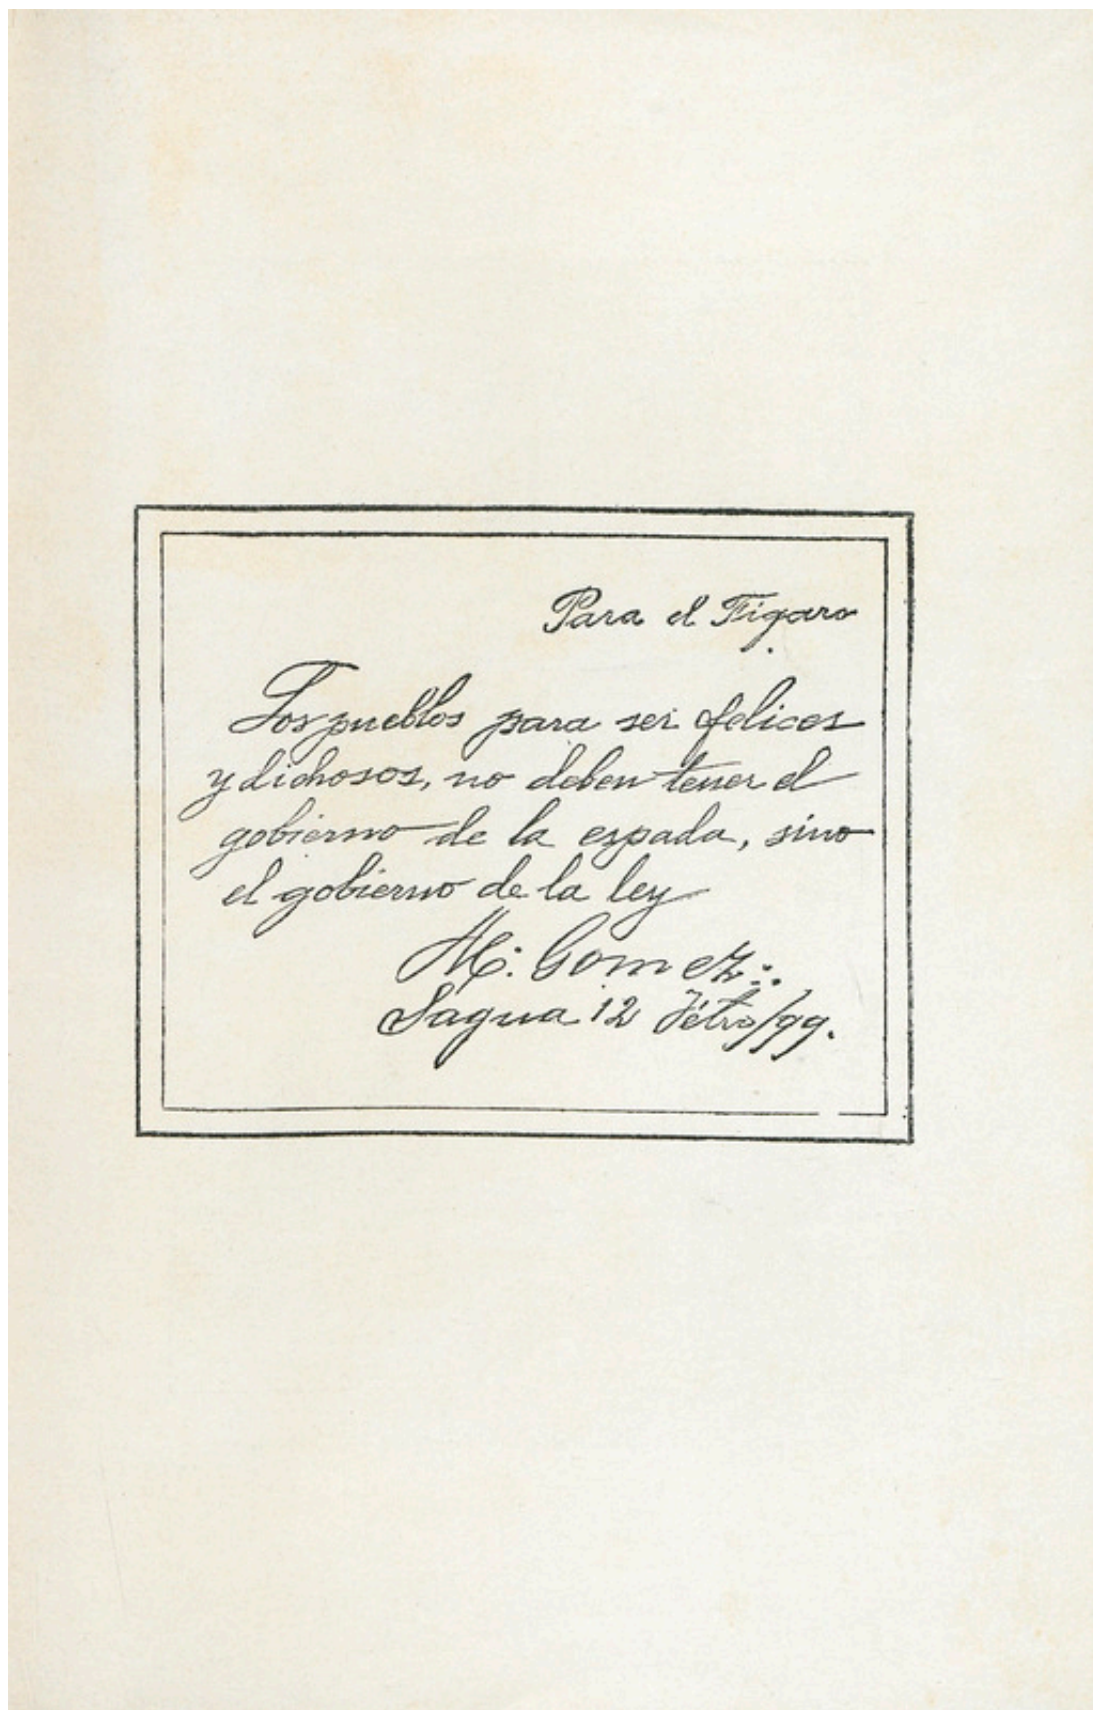 Para el Figaro
Los pueblos para ser felices
y dichosos, no deben tener el
gobierno de la espada, sino
el gobierno de la ley
M. Gomez:.
Sagua 12 Fétro/99.